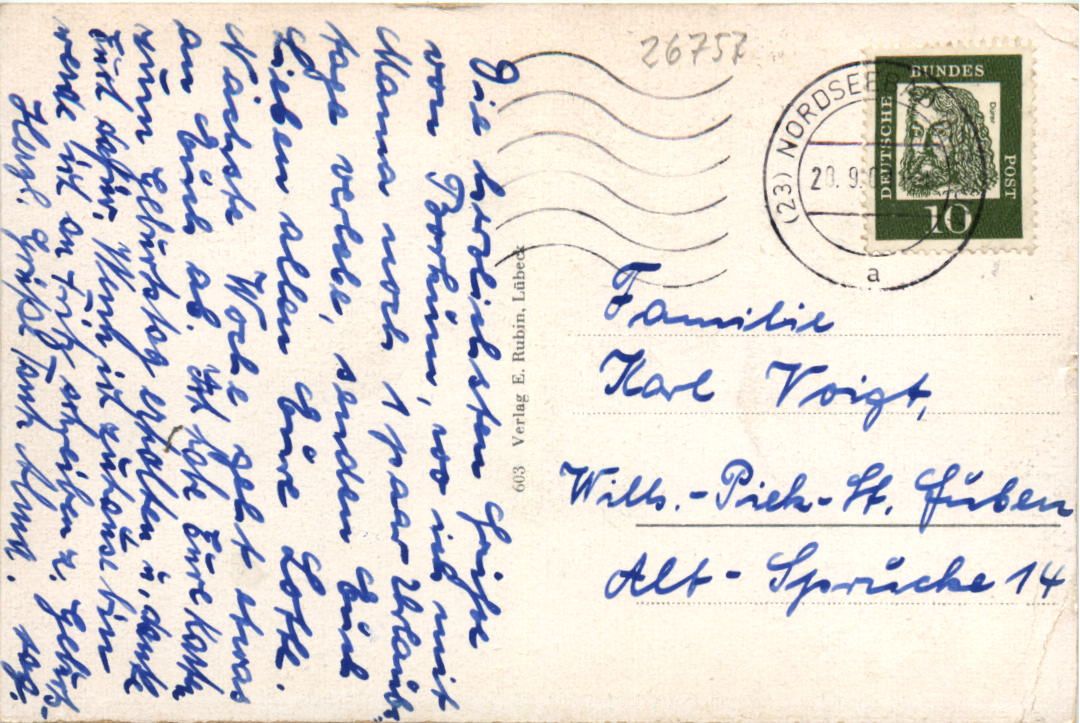 Die herzlichsten Grüße
von Borkum, wo ich mit
Mama noch 1 paar Urlaubs-
tage verlebe, senden Euch
Lieben allen Eure Lotte.
Nächste Woche geht etwas
an Euch ab. Ich habe Eure Karte
zum Geburtstag erhalten u. danke
Euch dafür. Wenn ich zuhause bin
werde ich an Fritz schreiben z. Geburts-
tag.
Herzl. Grüße Tante Anna.
603 Verlag E. Rubin, Lübeck
26757
(23) NORDSEEBAD
20. 9.
a
DEUTSCHE BUNDES POST
Dürer
10
Familie
Karl Voigt,
Wilh.-Piek-St. Guben
Alt-Sprucke 14